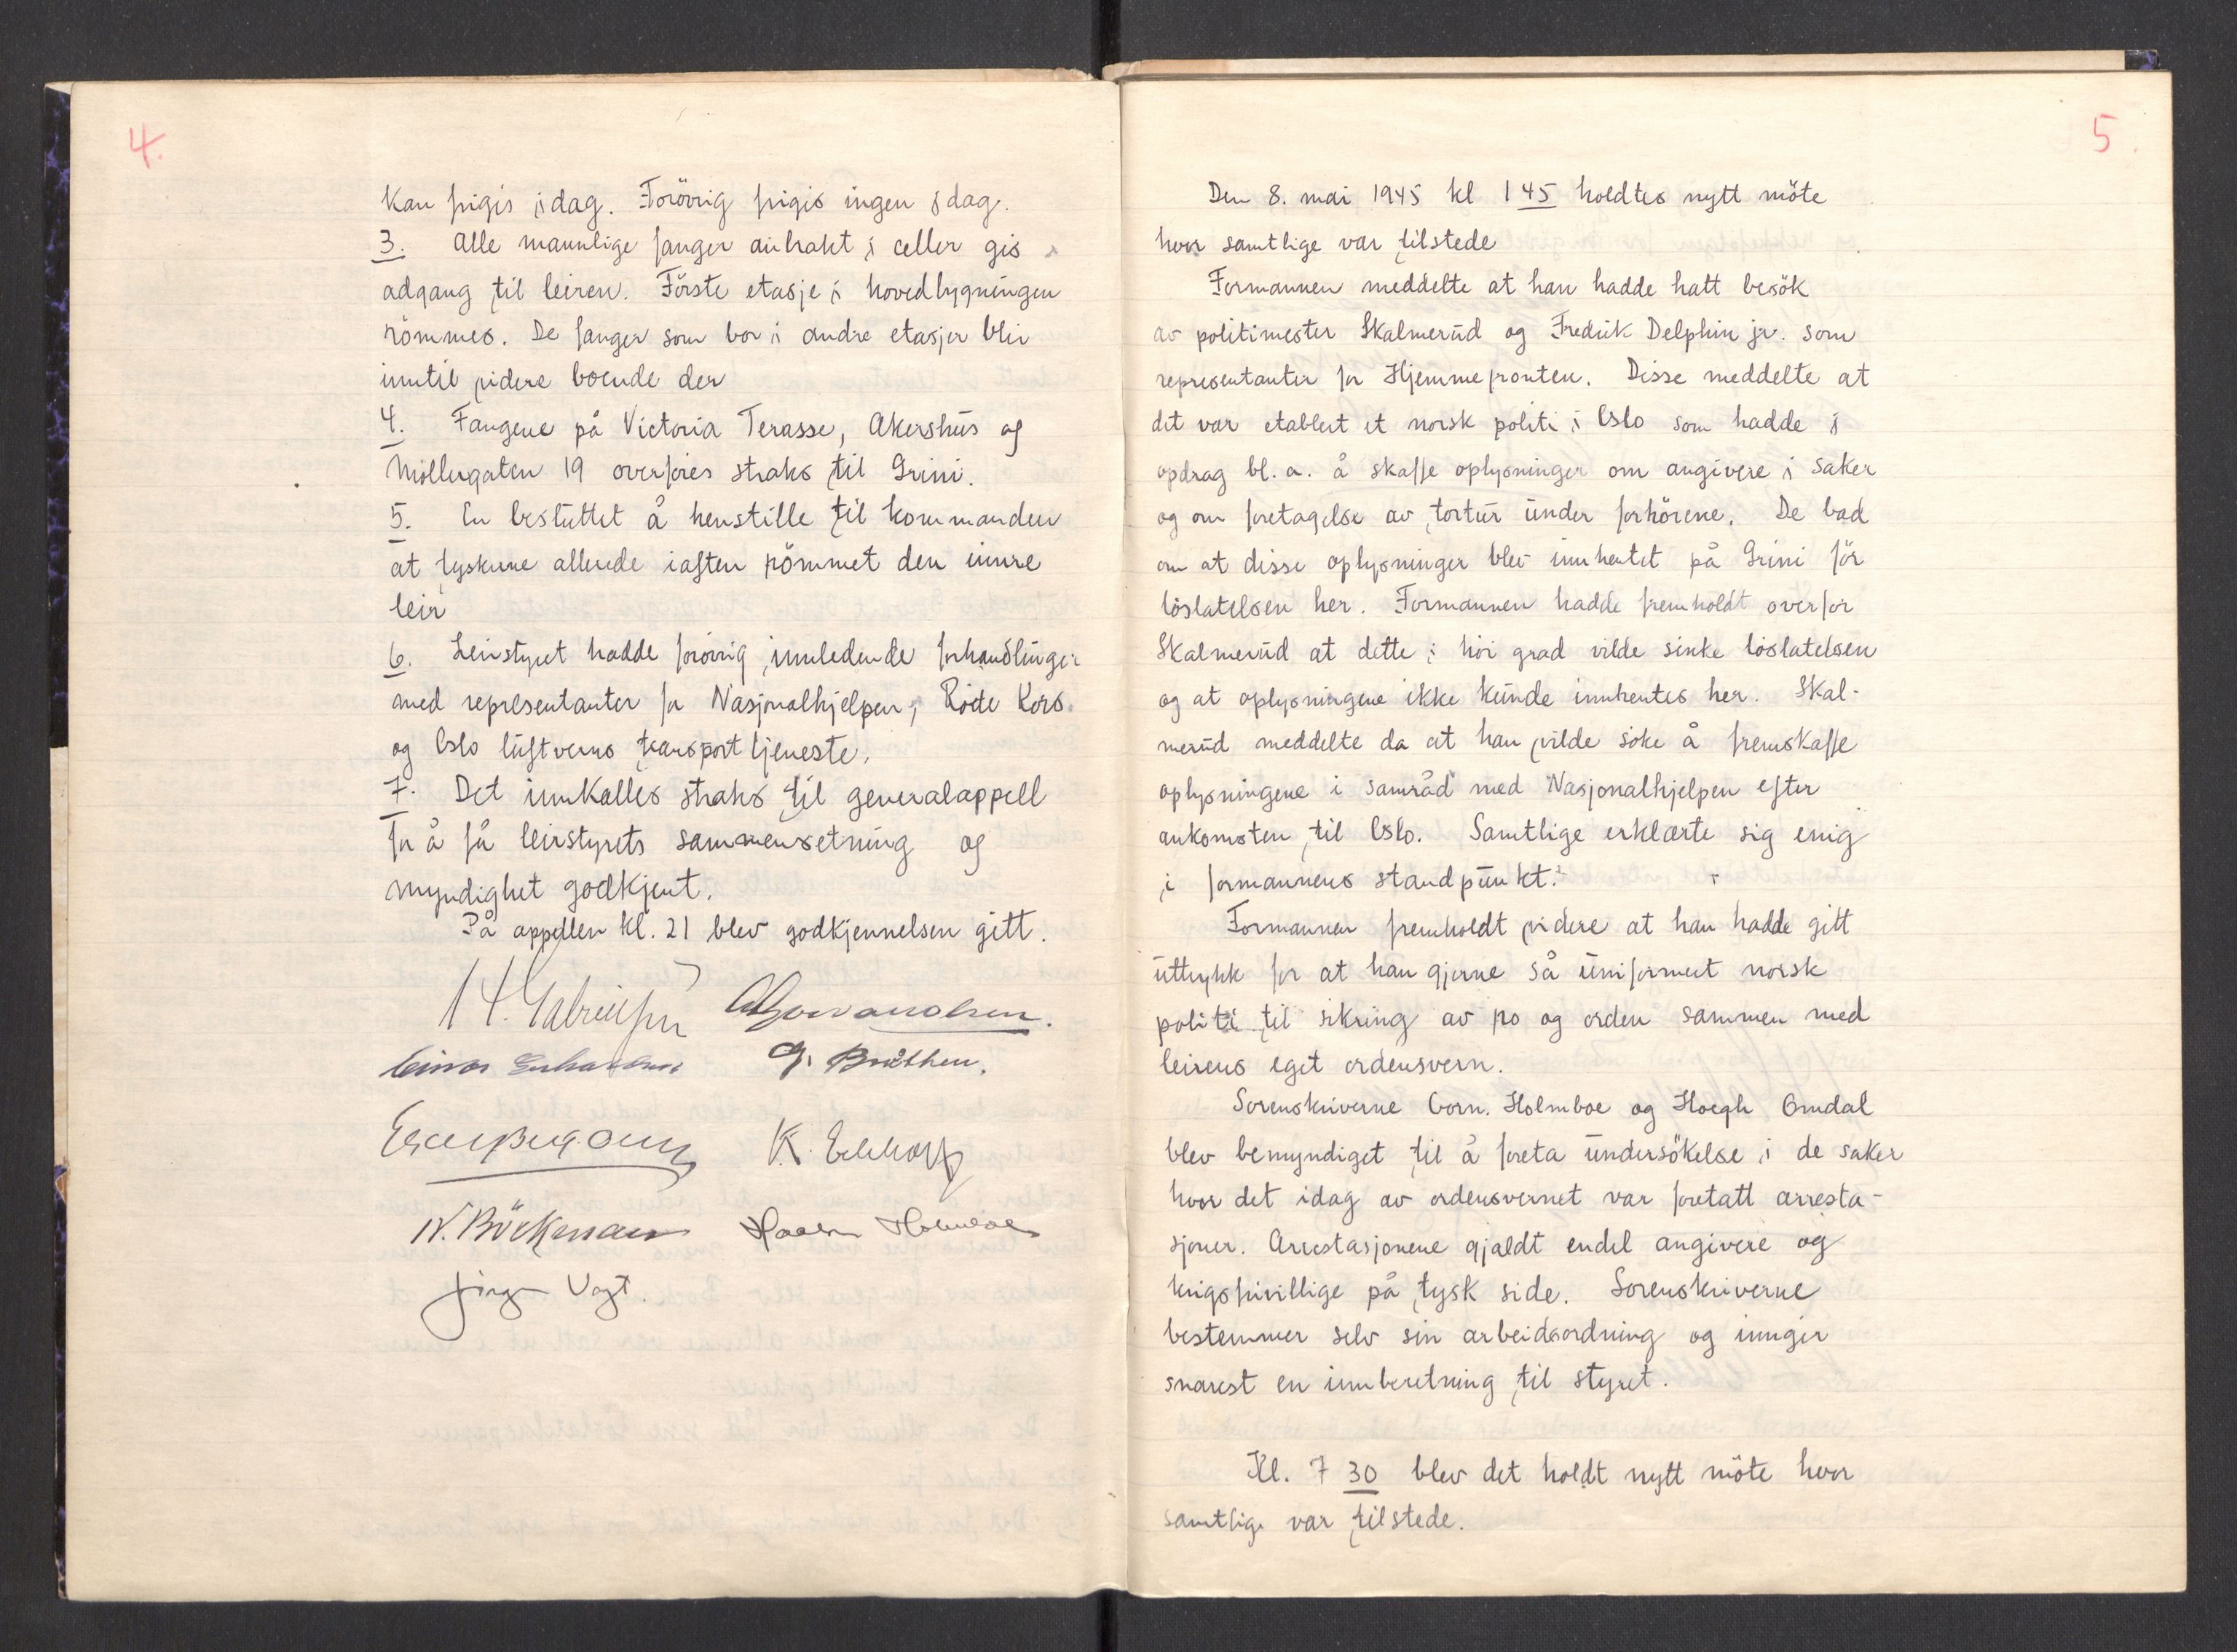 4.
kan frigis idag. Forövrig frigis ingen idag.
3. Alle mannlige fanger anbrakt i celler gis
adgang til leiren. Förste etasje i hovedbygningen
römmes. De fanger som bor i andre etasjer blir
inntil videre boende der
4. Fangene på Victoria Terasse, Akershus og
Möllergaten 19 overföres straks til Grini.
5. En besluttet å henstille til kommandten
at tyskerne allerede iaften römmet den innre
leir
6. Leirstyret hadde forövrig innledende forhandlinger
med representanter for Nasjonalhjelpen, Röde Kors
og Oslo luftverns transporttjeneste.
7. Det innkalles straks til generalappell
for å få leirstyrets sammensetning og
myndighet godkjent.
På appellen kl. 21 blev godkjennelsen gitt.
H. Gabrielsen
Einar Gerhardsen G. Bråthen.
K.
K. Böckman Haaken Holmboe
Jörgen Vogt.
5
Den 8. mai 1945 kl 1 45 holdtes nytt möte
hvor samtlige var tilstede
Formannen meddelte at han hadde hatt besök
av politimester Skalmerud og Fredrik Delphin jr. som
representanter for Hjemmefronten. Disse meddelte at
det var etablert et norsk politi i Oslo som hadde i
opdrag bl. a. å skaffe oplysninger om angivere i saker
og om foretagelse av tortur under forhörene. De bad
om at disse oplysninger blev innhentet på Grini för
löslatelsen her. Formannen hadde fremholdt overfor
Skalmerud at dette i höi grad vilde sinke löslatelsen
og at oplysningene ikke kunde innhentes her. Skal-
merud meddelte da at han vilde söke å fremskaffe
oplysningene i samråd med Nasjonalhjelpen efter
ankomsten til Oslo. Samtlige erklærte sig enig
i formannens standpunkt.
Formannen fremholdt videre at han hadde gitt
uttrykk for at han gjerne så uniformert norsk
politi til sikring av ro og orden sammen med
leirens eget ordensvern.
Sorenskriverne Corn. Holmboe og Hoegh Omdal
blev bemyndiget til å foreta undersökelse i de saker
hvor det idag av ordensvernet var foretatt arresta-
sjoner. Arrestasjonene gjaldt endel angivere og
krigsfrivillige på tysk side. Sorenskriverne
bestemmer selv sin arbeidsordning og inngir
snarest en innberetning til styret.
Kl. 7 30 blev det holdt nytt möte hvor
samtlige var tilstede.